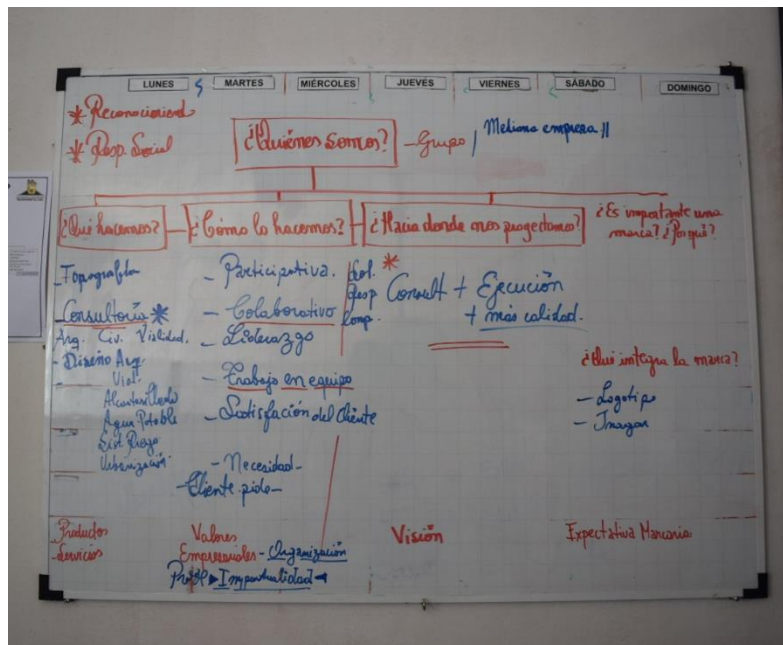 LUNES MARTES MIÉRCOLES JUEVES VIERNES SÁBADO DOMINGO
* Resp. Social
¿Quiénes somos? - Grupo / Mediana empresa //
¿Qué hacemos? ¿Cómo lo hacemos? ¿Hacia donde nos proyectamos?
¿Es importante una
marca? ¿Porqué?
- Topografía
- Consultoría *
Arq. Civ. Vialidad.
- Diseño Arq.
- Vial.
Alcantarillado
Agua Potable
Sist Riego
Urbanización
- Participativa.
- Colaborativo
- Liderazgo
- Trabajo en equipo
- Satisfacción del Cliente
- Necesidad -
- Cliente pide -
*
Resp
Consult + Ejecución
+ más calidad.
¿Qué integra la marca?
- Logotipo
- Imagen
Productos
- Servicios
Valores
Empresariales - Organización
Visión
Expectativa Marcaria